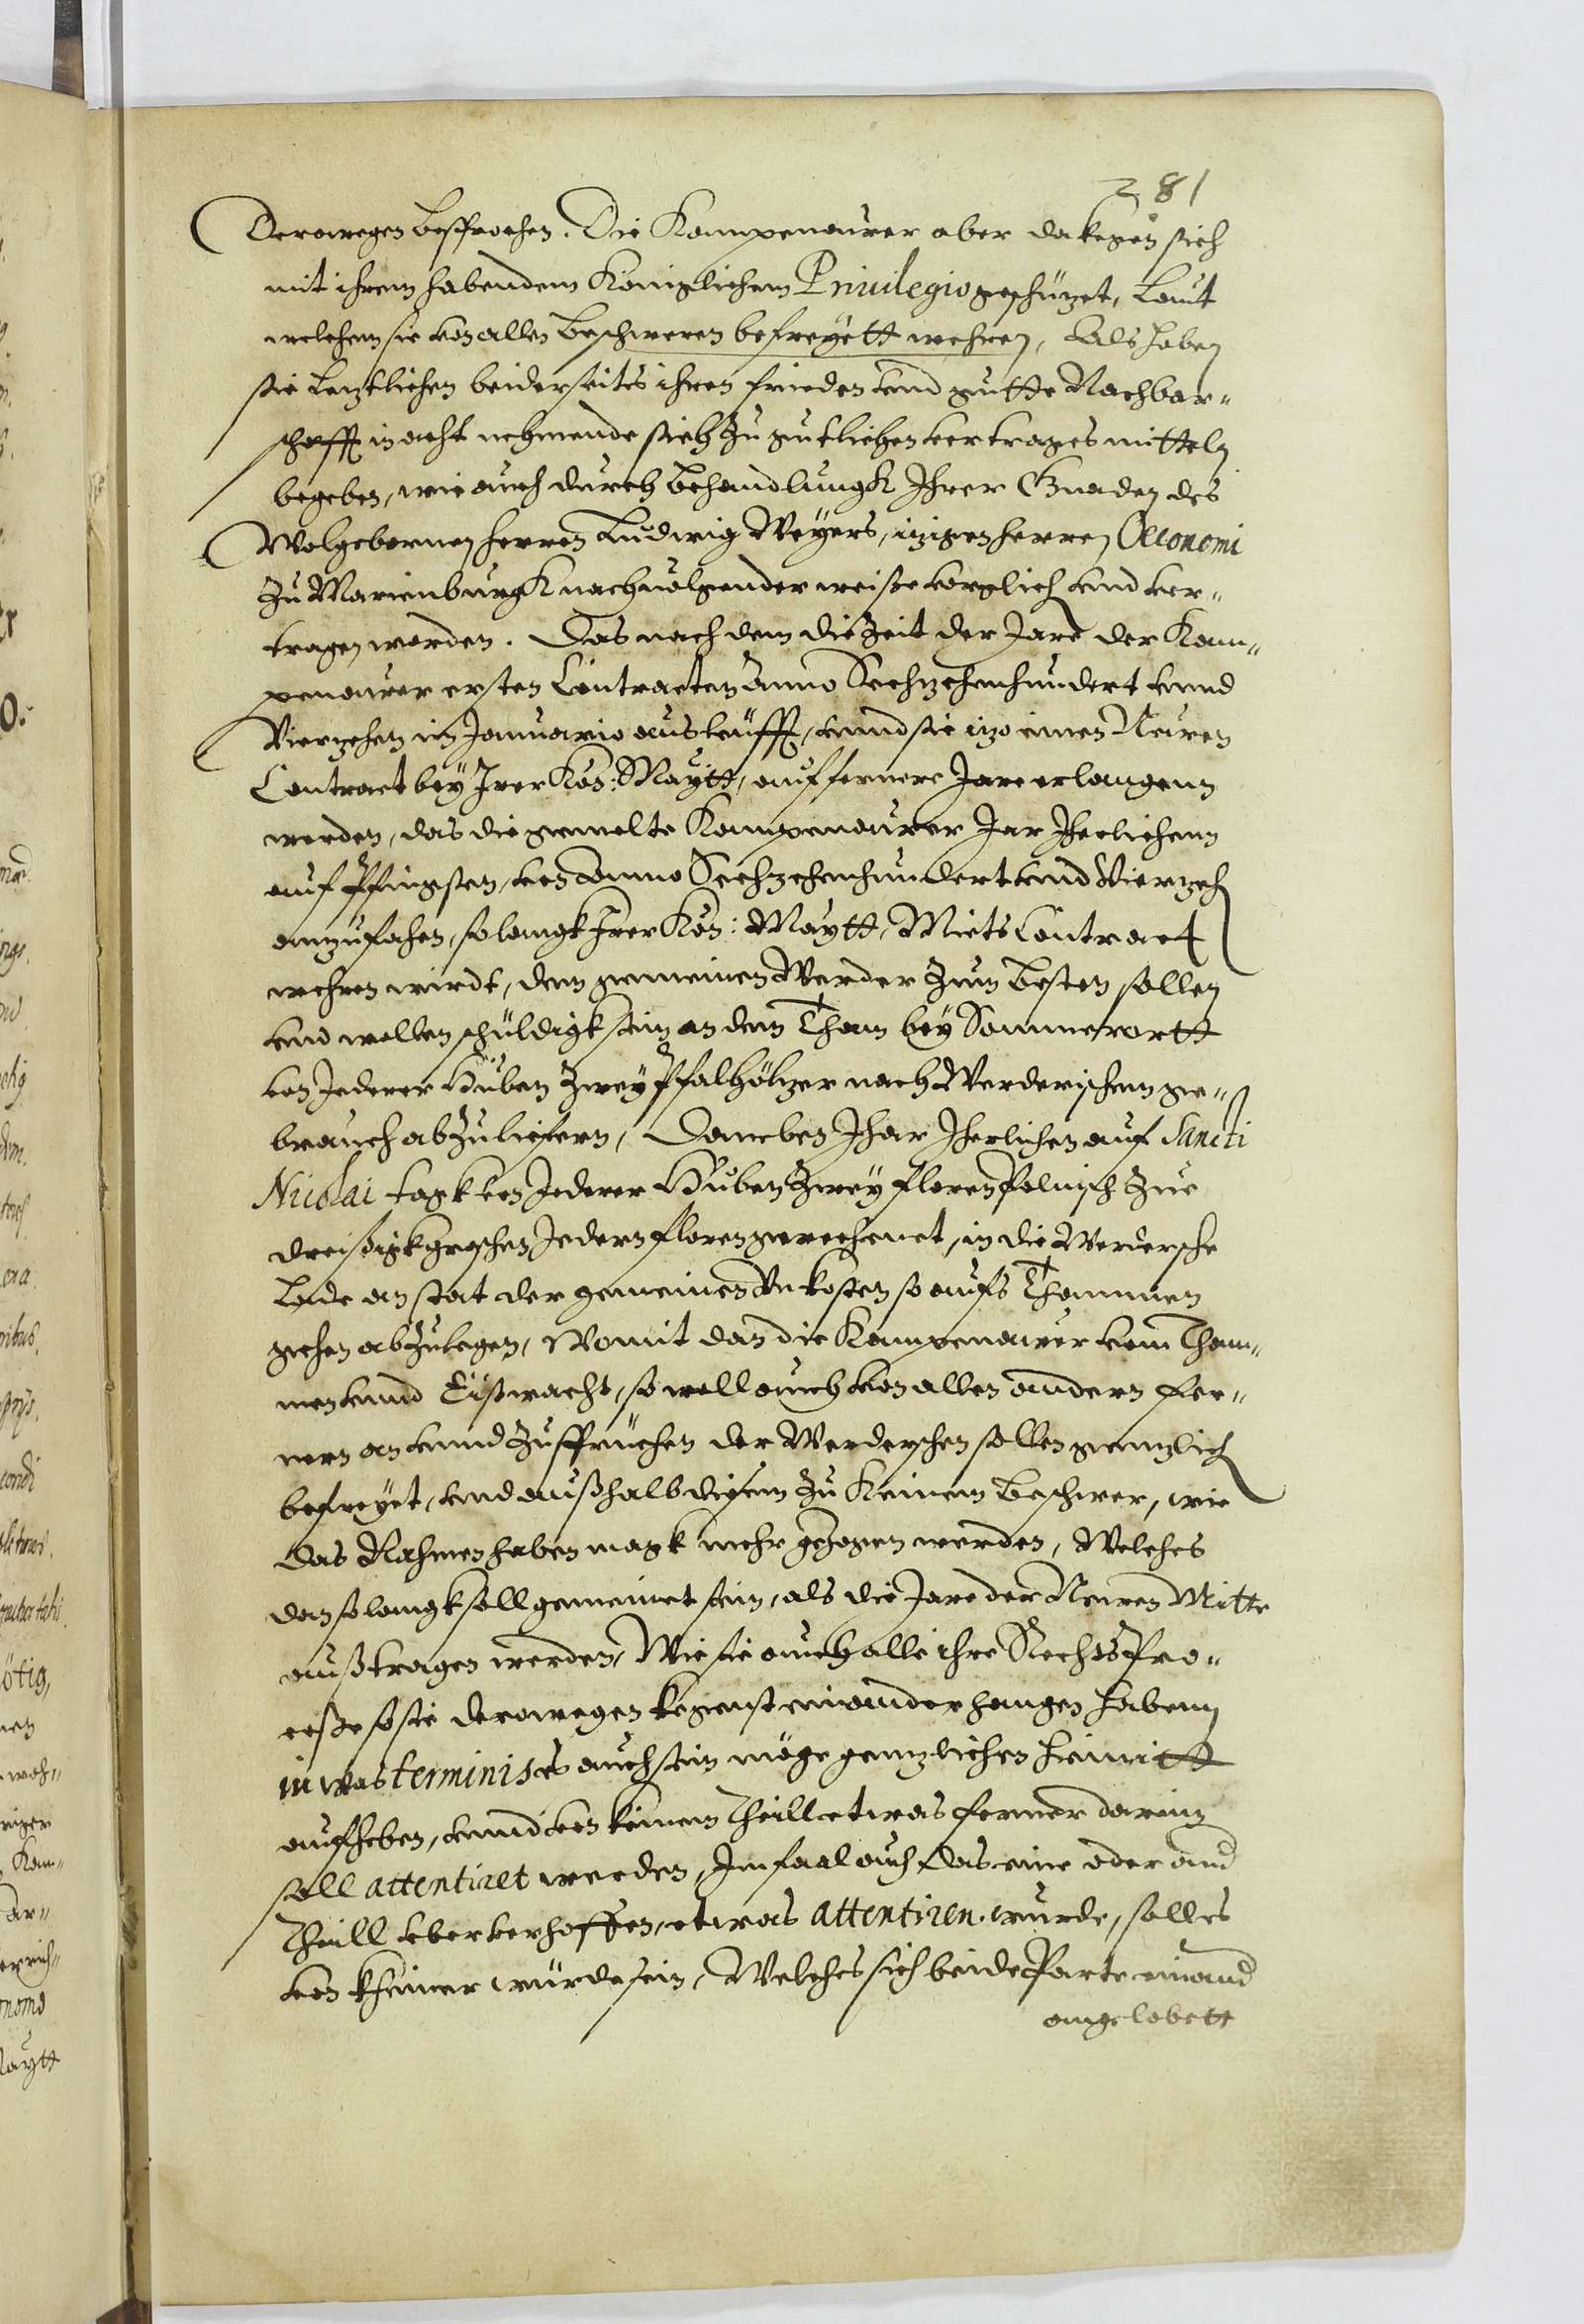 281
Derowegen besprochen. Die Kampenaurer aber dakegen sich
mit ihrem habendem Königlichem Priuilegio geschützet, Laut
welchem sie von allen beschweren befreyett wehren, Als haben
sie letztlichen beiderseits ihren frieden vnd gutte Nachbar„
schafft in acht nehmende sich zu gutlichen vertrages mitteln
begeben, wie auch durch behandlungk Ihrer Gnaden des
Wolgebornen herren Ludwig Weyers, itzigen herren Oeconomi
zu Marienburgk nachuolgender weise verglich vnd ver„
tragen worden. Das nach dem die Zeit der Jare der Kam„
penaurer ersten Contracten Anno Sechzehenhundert vnnd
Vierzehen im Januario ausleufft, vnnd sie itzo einen Neuen
Contract bey Irer Kön: Maytt, auf fernere Jare erlangenn
werden, das die gemelte Kampenaurer Jar Iherlichenn
auf Pfingsten, von Anno Sechzehenhundert vnd Vierzeh
anzufahen, so langk Irer Kön: Maytt, Miets Contract
wehren wirdt, dem gemeinen Werder zum besten sollen
vnd wollen schuldigk sein an dem Tham bey Sommerortt
von Jederer Huben zwey Pfalhöltzer nach Werderischem ge„
brauch abzuliefern, Daneben Ihar Iherlichen auf Sancti
Nicolai tagk von Jederer Huben Zwey floren Polnisch zue
dreissigk groschen Jedern floren gerechenet, in die Werdersche
Lade an stat der gemeinen Vnkosten so aufs Thammen
gehen abzulegen, Womit dan die Kampenaurer vom Tham„
men vnnd Eißwacht, so woll auch von allen andern fer„
nern an vnnd zusprüchen der Werderschen sollen gentzlich
befreyet, vnd außhalb diesem zu Keinem beschwer, wie
das Nahmen haben magk mehr gezogen werden, Welches
dan so langk soll gemeinet sein, als die Jare der Neuen Mitte
außtragen werden, Wie sie auch alle ihre Rechts Pro„
cesse so sie derowegen kegenst einander hangen habenn
in was terminis es auch sein möge gentzlichen hiemitt
aufheben, vnnd von keinem Theill etwas ferner darin
soll attentiret werden, Im faal auch das eine oder and
Theill vber verhoffen, etwas attentiren wurde, soll es
von kheiner würde sein, Welches sich beide Parte einand
angelobett